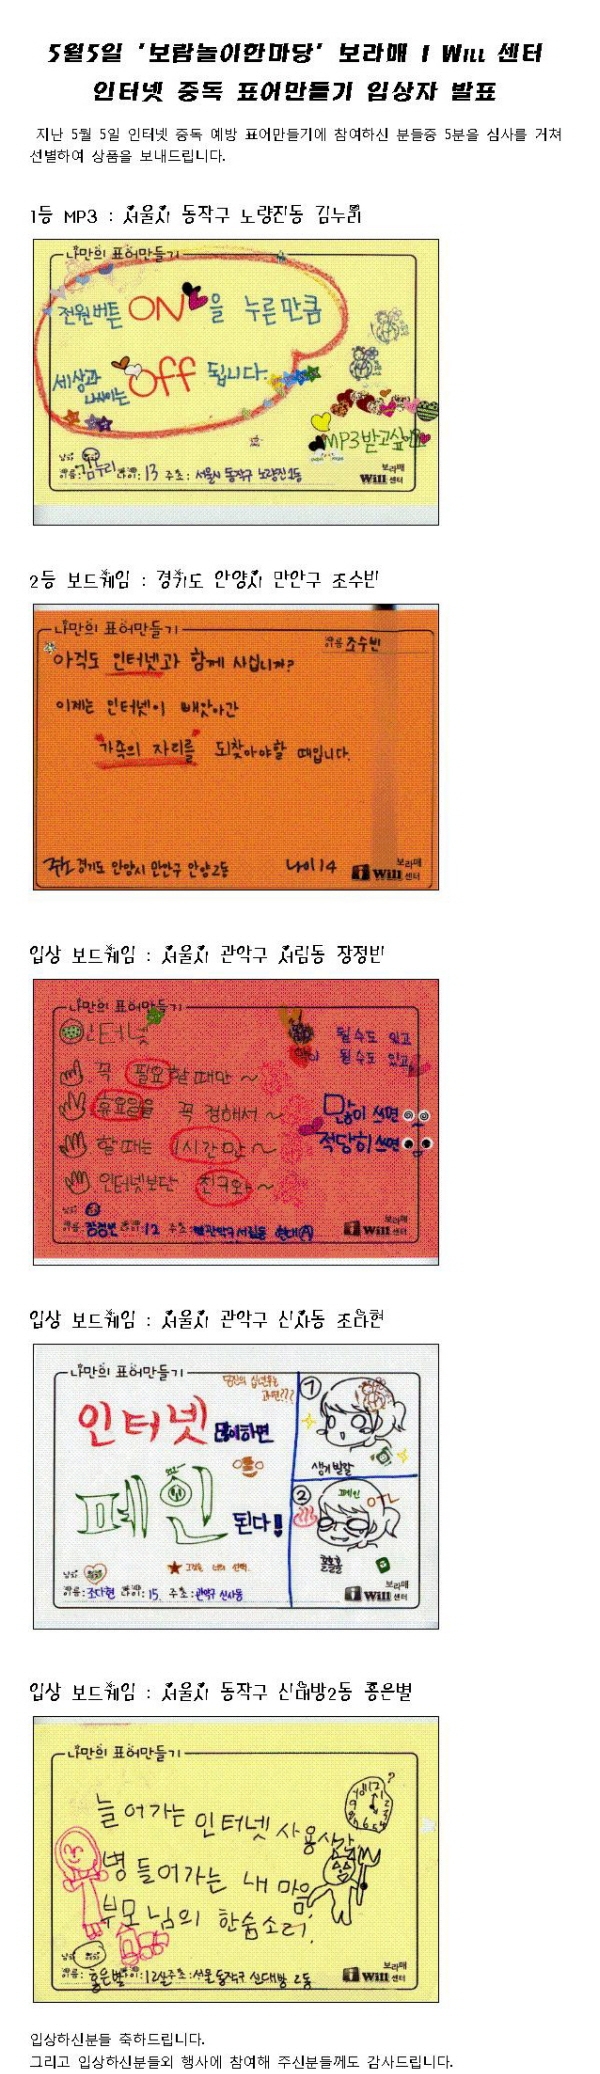 5월5일 '보람놀이한마당' 보라매 I Will 센터
인터넷 중독 표어만들기 입상자 발표
지난 5월 5일 인터넷 중독 예방 표어만들기에 참여하신 분들중 5분을 심사를 거쳐
선별하여 상품을 보내드립니다.
1등 MP3 : 서울시 동작구 노량진동 김누리
나만의 표어만들기
전원버튼 ON을 누른만큼
세상과 나사이는 Off 됩니다.
MP3받고싶어
이름:김누리 나이:13 주소: 서울시 동작구 노량진2동
보라매
Will 센터
2등 보드게임 : 경기도 안양시 만안구 조수빈
나만의 표어만들기
이름 조수빈
아직도 인터넷과 함께 사십니까?
이제는 인터넷이 빼앗아간
가족의 자리를 되찾아야할 때입니다.
주소 경기도 안양시 만안구 안양2동 나이14
보라매
i Will 센터
입상 보드게임 : 서울시 관악구 서림동 장정빈
나만의 표어만들기
인터넷
될수도 있고
될수도 있고
꼭 필요할때만~
휴요일을 꼭 정해서~
많이 쓰면
할때는 1시간만~
적당히쓰면
인터넷보단 친구와~
이름:장정빈 나이:12 주소: 관악구 서림동 현대(A)
보라매
i Will 센터
입상 보드게임 : 서울시 관악구 신사동 조다현
나만의 표어만들기
당신의 십년후는
과연???
①
인터넷 많이하면
생기발랄
②
폐인 OTL
폐인 된다!
그것은 너의 선택.
남 여
이름:조다현 나이:15 주소:관악구 신사동
보라매
i Will 센터
입상 보드게임 : 서울시 동작구 신대방2동 홍은별
나만의 표어만들기
늘어가는 인터넷 사용시간
병들어가는 내 마음
부모님의 한숨소리.
남 여
이름:홍은별 나이:12살 주소:서울 동작구 신대방 2동
보라매
i Will 센터
입상하신분들 축하드립니다.
그리고 입상하신분들외 행사에 참여해 주신분들께도 감사드립니다.